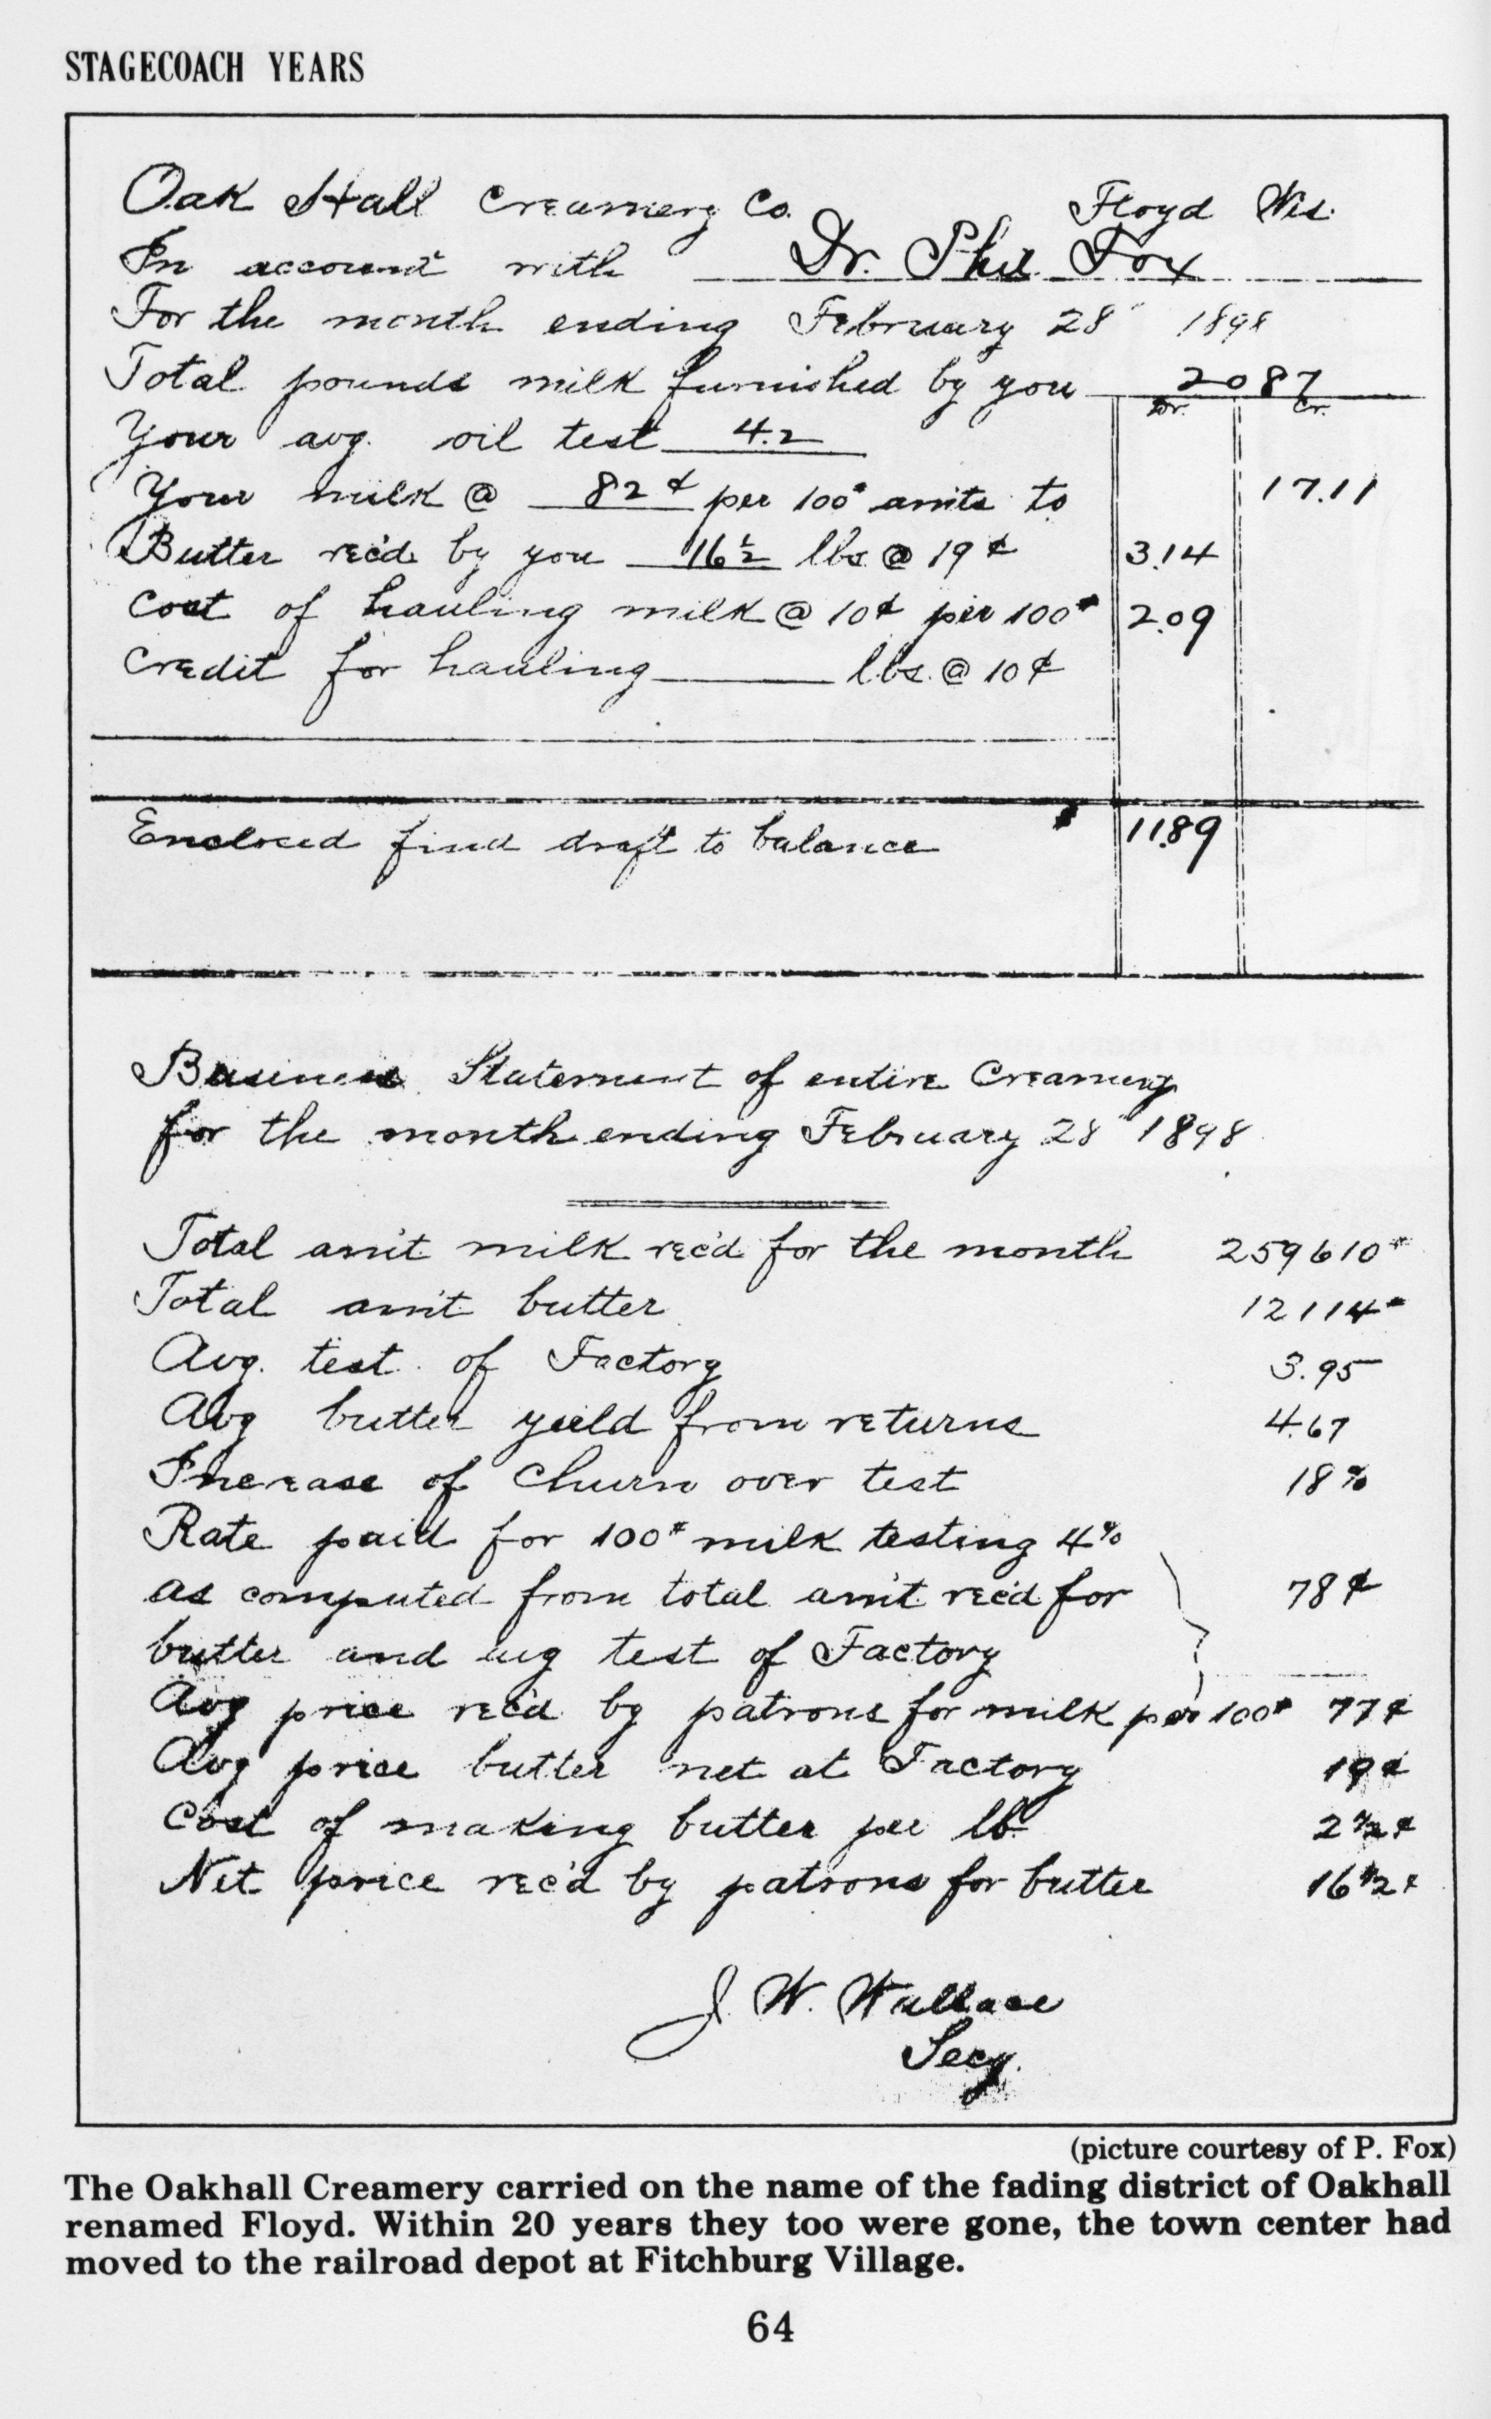 STAGECOACH YEARS
Oak Hall Creamery Co. Floyd Wis.
In account with Dr. Phil Fox
For the month ending February 28" 1898
Total pounds milk furnished by you 2087
Dr. Cr.
Your avg. oil test 4.2
Your milk @ 82¢ per 100# am't's to 17.11
Butter rec'd by you 16½ lbs @ 19¢ 3.14
Cost of hauling milk @ 10¢ per 100# 2.09
Credit for hauling lbs. @ 10¢
Enclosed find draft to balance 11.89
Business Statement of entire Creamery
for the month ending February 28" 1898
Total am't milk rec'd for the month 259610#
Total am't butter 12114#
Avg. test of Factory 3.95
Avg butter yield from returns 4.67
Increase of Churn over test 18%
Rate paid for 100# milk testing 4%
as computed from total am't rec'd for 78¢
butter and avg test of Factory
Avg price rec'd by patrons for milk per 100# 77¢
Avg price butter net at Factory 19¢
Cost of making butter per lb 2½¢
Net price rec'd by patrons for butter 16½¢
J. W. Wallace
Secy.
(picture courtesy of P. Fox)
The Oakhall Creamery carried on the name of the fading district of Oakhall
renamed Floyd. Within 20 years they too were gone, the town center had
moved to the railroad depot at Fitchburg Village.
64